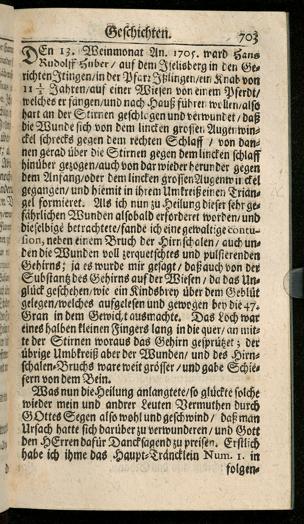 Geschichten. 703
DEn 13. Weinmonat An. 1705. ward Hans
Rudolff Huber / auf dem Itelisberg in den Ge-
richten Itingen / in der Pfarr Ißlingen / ein Knab von
11 ½ Jahren / auf einer Wiesen von einem Pferdt /
welches er fangen / und nach Hauß führen wollen / also
hart an der Stirnen geschlagen und verwundet / daß
die Wunde sich von dem lincken grossen Augenwin-
ckel schrecks gegen dem rechten Schlaff / von dan-
nen gerad über die Stirnen gegen dem lincken schlaff
hinüber gezogen / auch von dar wieder herunder gegen
dem Anfang / oder dem lincken grossen Augenwinckel
gegangen / und hiemit in ihrem Umkreiß einen Trian-
gel formieret. Als ich nun zu Heilung dieser sehr ge-
fährlichen Wunden alsobald erforderet worden / und
dieselbige betrachtete / fande ich eine gewaltige contu-
sion, neben einem Bruch der Hirnschalen / auch un-
den die Wunden voll zerquetschtes und pulsierenden
Gehirns; ja es wurde mir gesagt / daß auch von der
Substanß des Gehirns auf der Wiesen / da das Un-
glück geschehen / wie ein Kindsbrey über dem Geblüt
gelegen / welches aufgelesen und gewogen bey die 47.
Gran in dem Gewicht ausmachte. Das Loch war
eines halben kleinen Fingers lang in die quer / an mit-
te der Stirnen woraus das Gehirn gesprützet; der
übrige Umbkreiß aber der Wunden / und des Hirn-
schalen-Bruchs ware weit grösser / und gabe Schie-
fern von dem Bein.
Was nun die Heilung anlangtete / so glückte solche
wieder mein und andrer Leuten Vermuthen durch
GOttes Segen also wohl und geschwind / daß man
Ursach hatte sich darüber zu verwunderen / und Gott
den HErren dafür Dancksagend zu preisen. Erstlich
habe ich ihme das Haupt-Träncklein Num. 1. in
folgen-